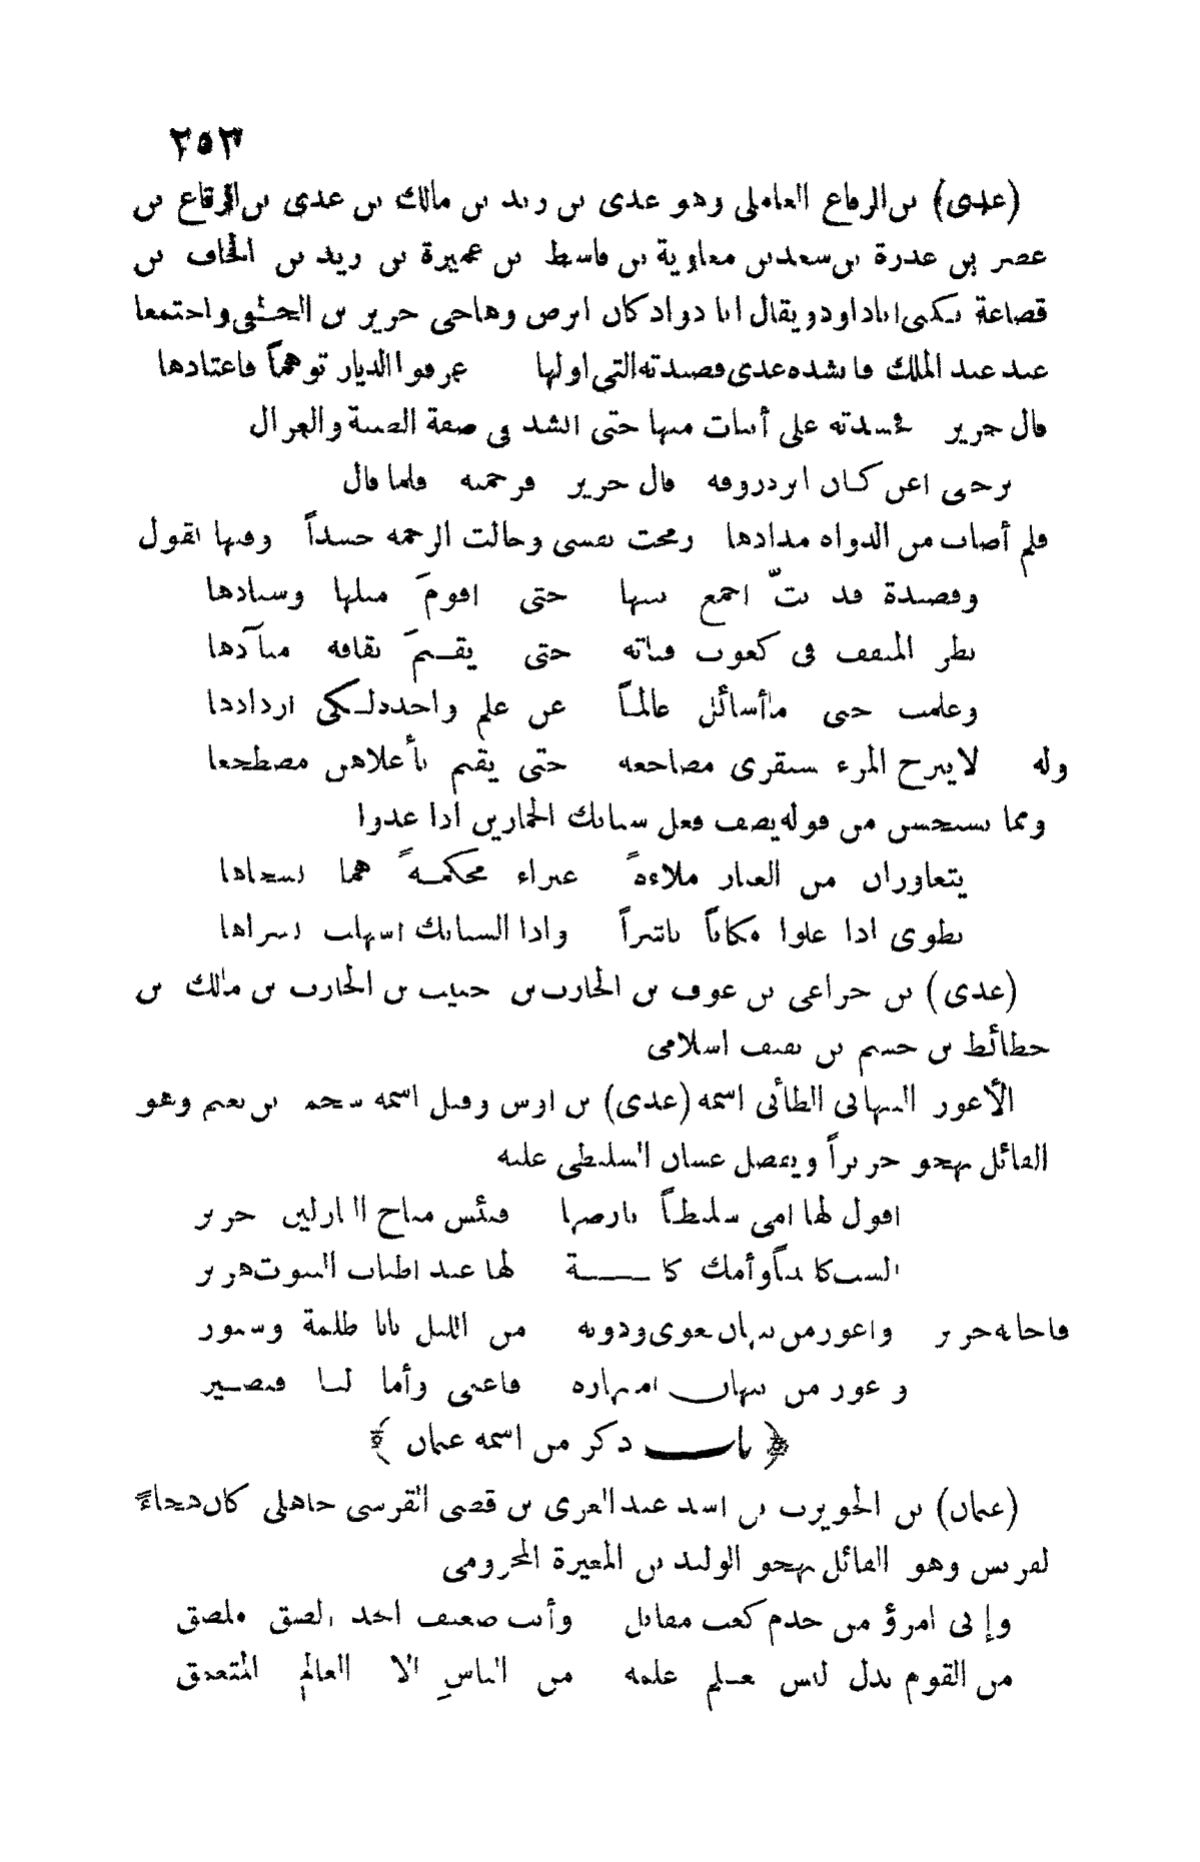 ٢٥٣
(عدى) بن الرقاع العاملى وهو عدى بن زيد بن مالك بن عدى بن الرقاع بن
عصر بن عدرة بن سعد بن معاوية بن قاسط بن عميرة بن زيد بن الحاف بن
قضاعة يكنى ابا داود ويقال ابا دواد كان ابرص وهاجى جرير بن الخطفى واجتمعا
عند عبد الملك فانشده عدى قصيدته التى اولها عرفوا الديار توهماً فاعتادها
قال جرير فحسدته على أبيات منها حتى انشد فى صفة الظبية والغزال
تزجى اغن كأن ابرة روقه قال جرير فرحمته فلما قال
قلم أصاب من الدواة مدادها رحمت نفسى وحالت الرحمة حسداً وفيها يقول
وقصيدة قد بتّ اجمع بينها حتى اقومَ ميلها وسنادها
نظر المثقف فى كعوب قناته حتى يقيمَ ثقافه منآدها
وعلمت حتى ما أسائل عالماً عن علم واحدة لكى ازدادها
وله لا يبرح المرء يستقرى مضاجعه حتى يقيم بأعلاهن مضطجعا
ومما يستحسن من قوله يصف فعل سنابك الحمارين اذا عدوا
يتعاوران من الغبار ملاءةً غبراء محكمةً هما نسجاها
تطوى اذا علوا مكاناً ناشزاً واذا السنابك اسهلت نشراها
(عدى) بن خزاعى بن عوف بن الحارث بن حبيب بن الحارث بن مالك بن
حطائط بن جشم بن ثقيف اسلامى
الأعور النبهانى الطائى اسمه (عدى) بن اوس وقيل اسمه سحمة بن نعيم وهو
القائل يهجو جريراً ويفضل غسان السليطى عليه
اقول لها امى سليطاً بارضها فبئس مناخ النازلين جرير
الست كليبياً وأمك كلبة لها عند اطناب البيوت هرير
فاجابه جرير واعور من نبهان يعوى ودونه من الليل بابا ظلمة وستور
وعور من نبهان اما نهاره فاعمى وأما ليله فبصير
﴿ باب ذكر من اسمه عثمان ﴾
(عثمان) بن الحويرث بن اسد عبد العزى بن قصى القرشى جاهلى كان هجاءً
لقريش وهو القائل يهجو الوليد بن المغيرة المخزومى
وإنى امرؤ من جذم كعب مقابل وأنت ضعيف الصق ملصق
من القوم نذل ليس يعلم علمه من الناسِ الا العالم المتعمق